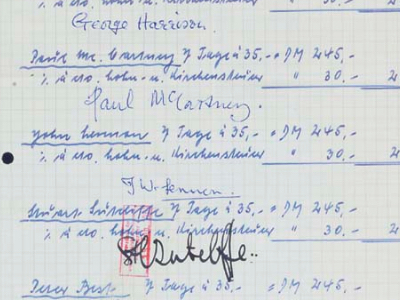 % à Kto. Lohn- u. Kirchensteuer " 30.- 2
George Harrison
Paul Mc. Cartney 7 Tage à 35,- = DM 245,-
% à Kto. Lohn- u. Kirchensteuer " 30.- 24
Paul McCartney.
John Lennon 7 Tage à 35,- = DM 245.-
% à Kto. Lohn- u. Kirchensteuer " 30.- 2
J. W. Lennon.
Stuart Sutcliffe 7 Tage à 35,- = DM 245,-
% à Kto. Lohn- u. Kirchensteuer " 30.- 2
Sutcliffe..
Peter Best 7 Tage à 35,- = DM 245.-